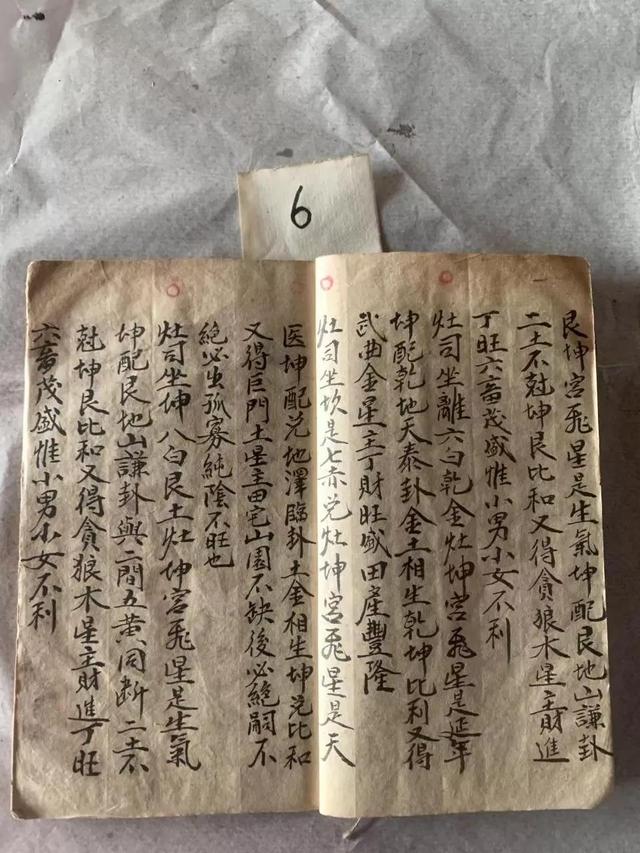 6
艮坤宮飛星是生氣坤配艮地山謙卦
二土不尅坤艮比和又得貪狼木星主財進
丁旺六畜茂盛惟小男小女不利
灶司坐離六白乾金灶坤宮飛星是延年
坤配乾地天泰卦金土相生乾坤比利又得
武曲金星主丁財旺盛田產豐隆
灶司坐坎是七赤兌灶坤宮飛星是天
医坤配兌地澤臨卦土金相生坤兌比和
又得巨门土星主田宅山園不缺後必絕嗣不
絕必出孤寡純陰不旺也
灶司坐坤八白艮土灶坤宮飛星是生氣
坤配艮地山謙卦與二間五黃同断二土不
尅坤艮比和又得貪狼木星主財進丁旺
六畜茂盛惟小男小女不利